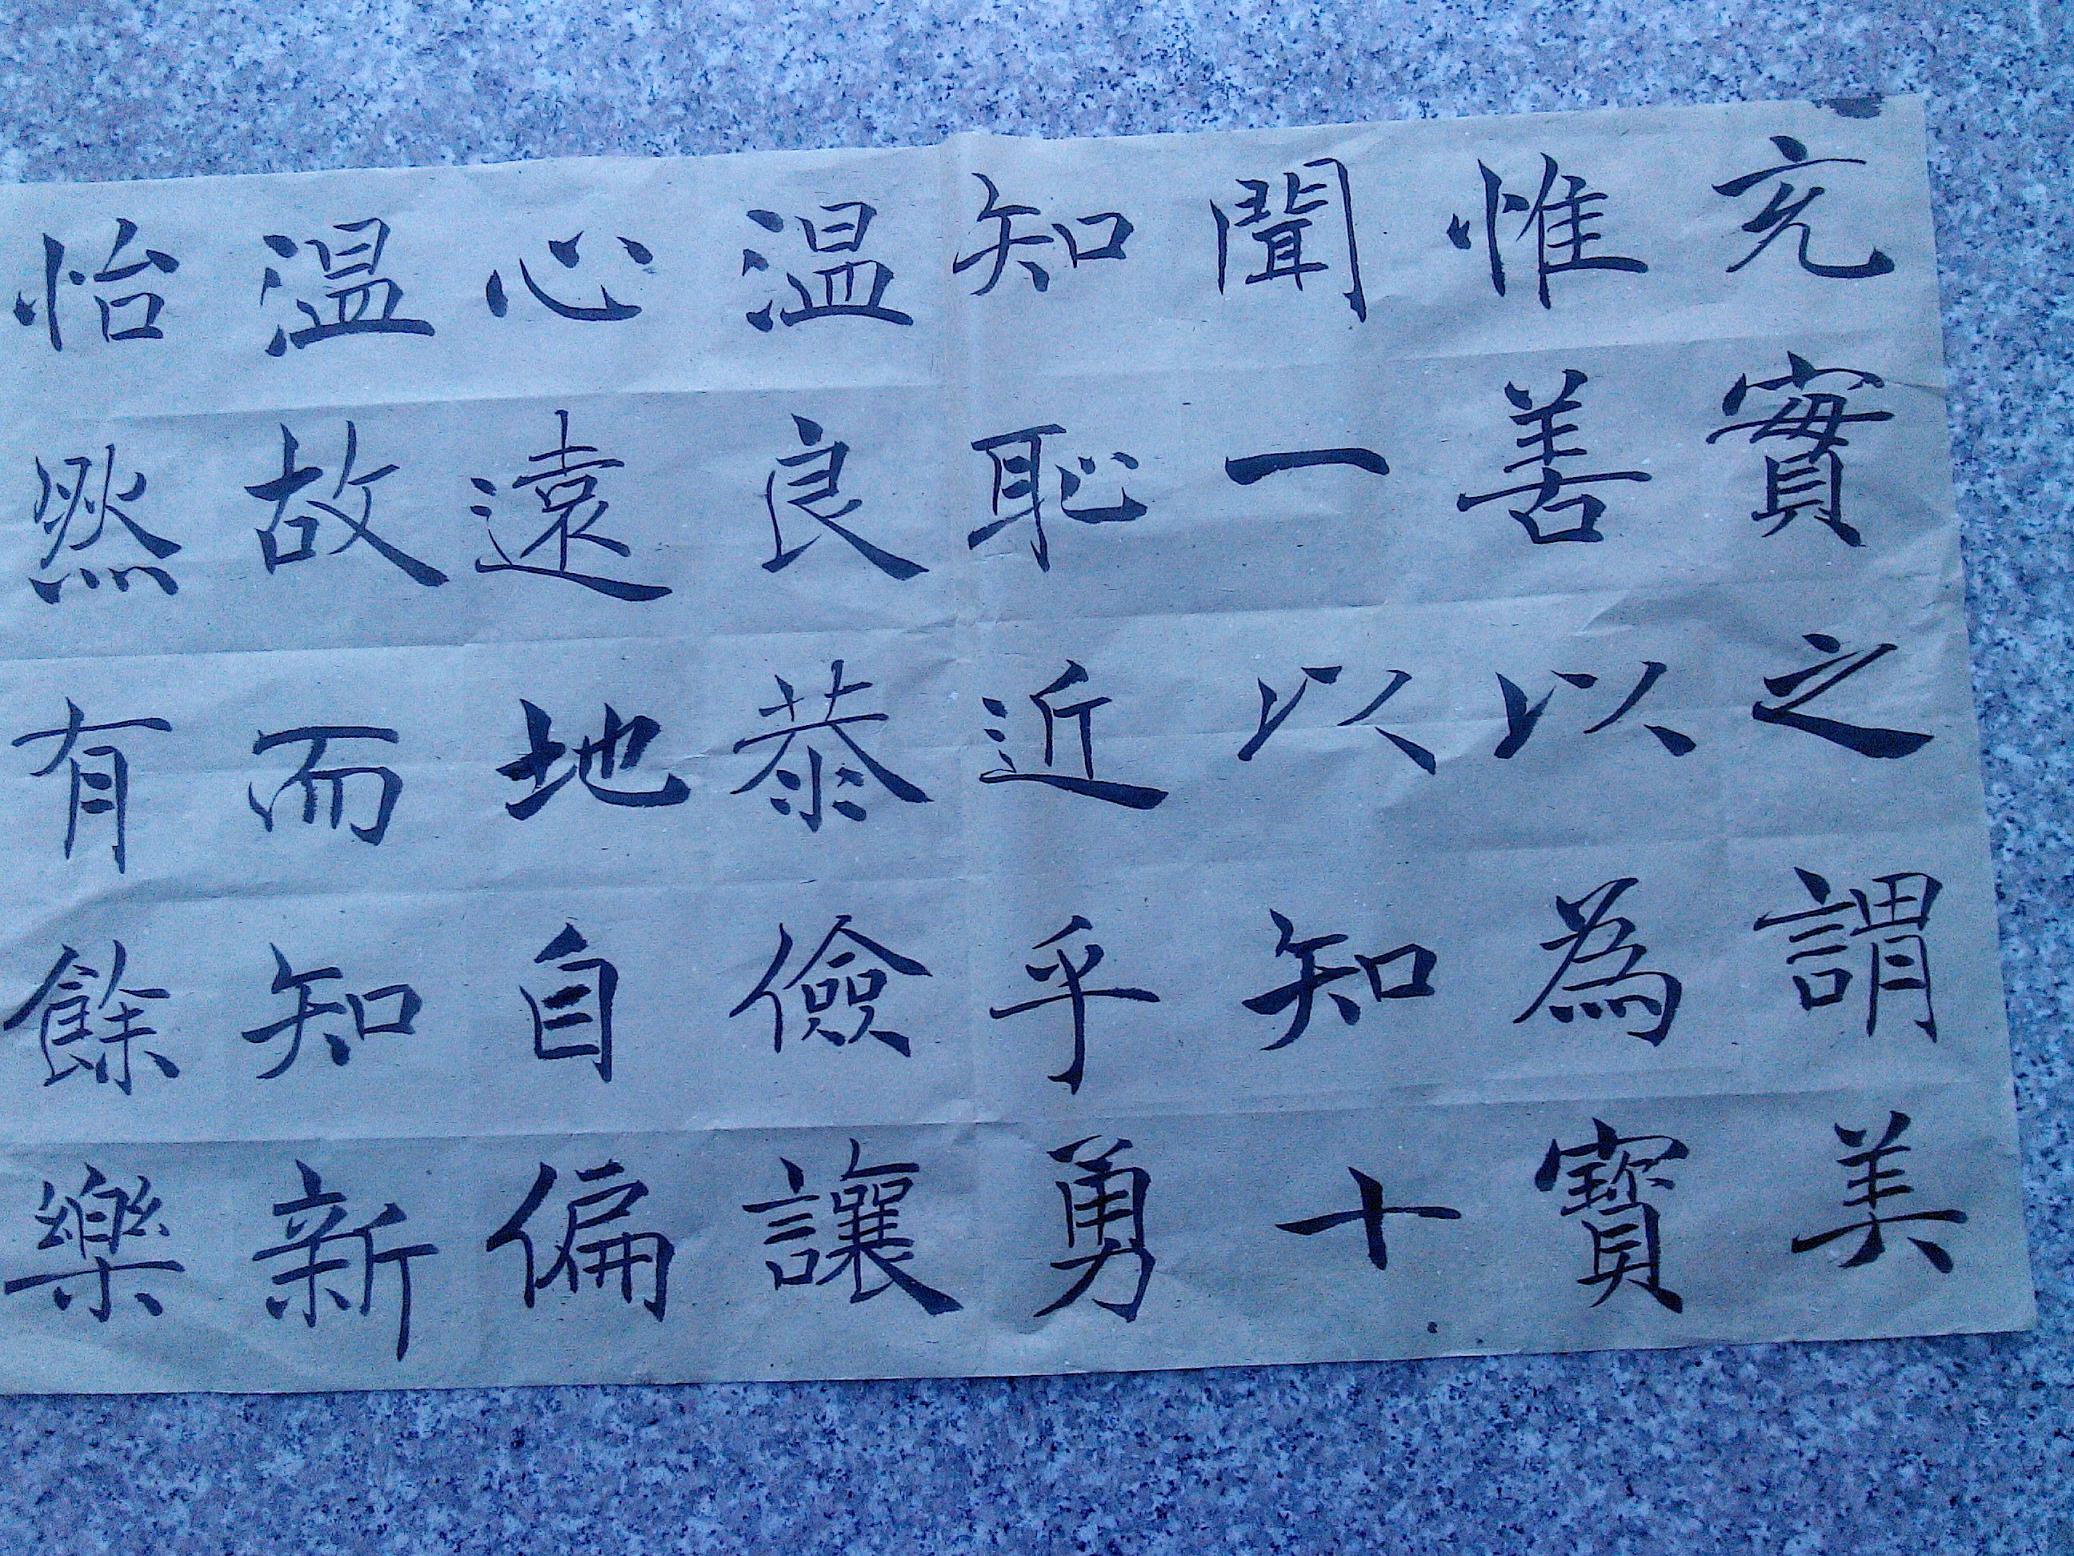 充實之謂美
惟善以為寶
聞一以知十
知恥近乎勇
温良恭儉讓
心遠地自偏
温故而知新
怡然有餘樂